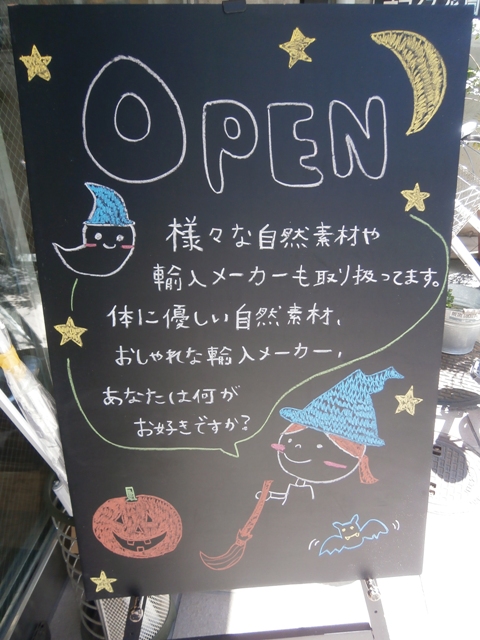 OPEN
様々な自然素材や
輸入メーカーも取り扱ってます。
体に優しい自然素材、
おしゃれな輸入メーカー、
あなたは何が
お好きですか?